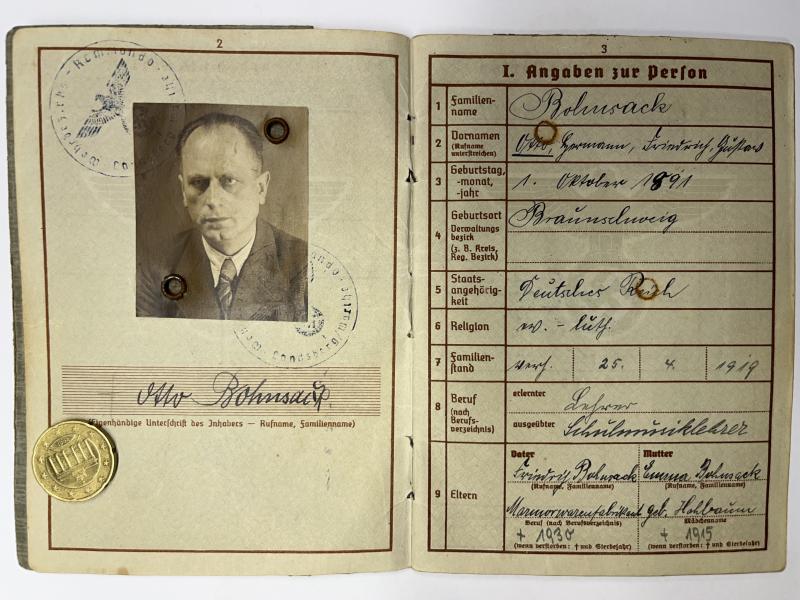 2
Wehrbezirks-Kommando
Otto Bohnsack
(Eigenhändige Unterschrift des Inhabers — Rufname, Familienname)
3
I. Angaben zur Person
1 Familien-
name
Bohnsack
2 Vornamen
(Rufname
unterstreichen)
Otto, Hermann, Friedrich, Gustav
3 Geburtstag,
-monat,
-jahr
1. Oktober 1891
4 Geburtsort
Verwaltungs
bezirk
(z. B. Kreis,
Reg. Bezirk)
Braunschweig
5 Staats-
angehörig-
keit
Deutsches Reich
6 Religion
ev. - luth.
7 Familien-
stand
verh. 25. 4. 1919
8 Beruf
(nach
Berufs-
verzeichnis)
erlernter
Lehrer
ausgeübter
Schulmusiklehrer
9 Eltern
Vater
Friedrich Bohnsack
(Rufname, Familienname)
Marmorwarenfabrikant
Beruf (nach Berufsverzeichnis)
† 1930
(wenn verstorben: † und Sterbejahr)
Mutter
Emma Bohnsack
(Rufname, Familienname)
geb. Hohlbaum
Mädchenname
† 1915
(wenn verstorben: † und Sterbejahr)